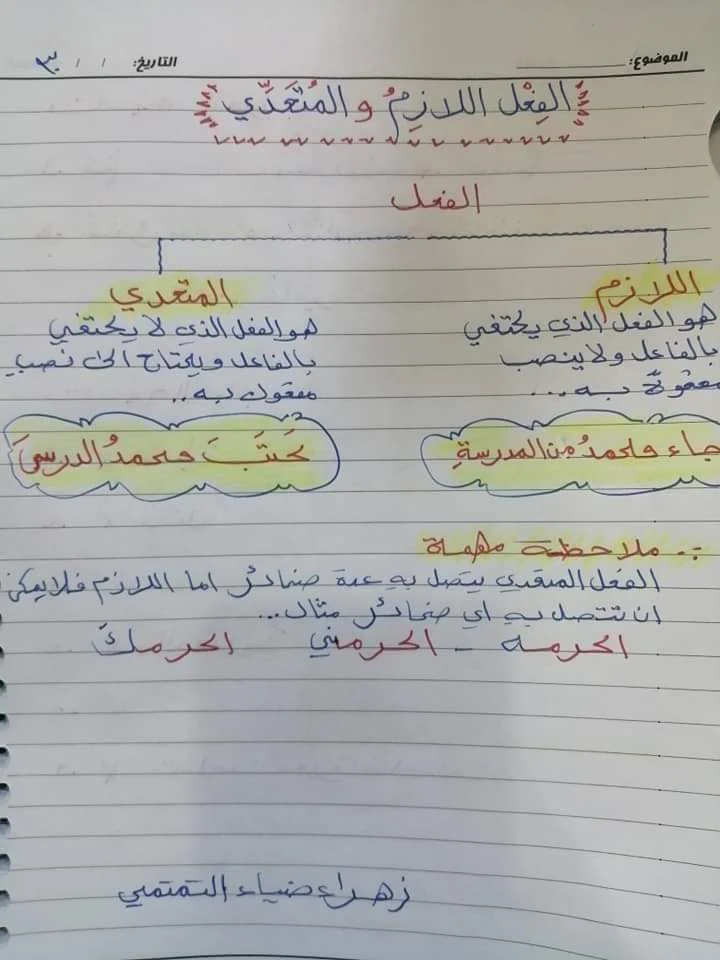 الموضوع: التاريخ: / / ٣
الفِعْل اللازِمُ و المُتَعَدِّي
الفعل
اللازم
هو الفعل الذي يكتفي
بالفاعل ولا ينصب
مفعولاً به...
جاء محمدُ من المدرسةِ
المتعدي
هو الفعل الذي لا يكتفي
بالفاعل ويحتاج الى نصب
مفعول به..
كَتَبَ محمدُ الدرسَ
ملاحظة مهمة
الفعل المتعدي يتصل به عدة ضمائر اما اللازم فلا يمكن
ان تتصل به اي ضمائر مثال...
اكرمه - اكرمني اكرمكَ
زهراء ضياء التميمي